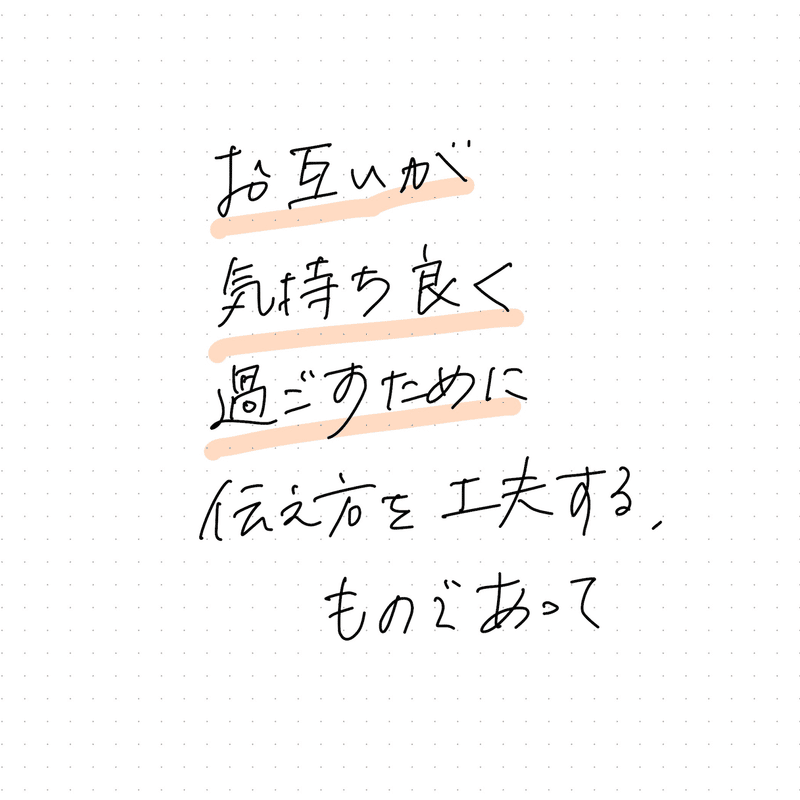 お互いが
気持ち良く
過ごすために
伝え方を工夫する、
ものであって